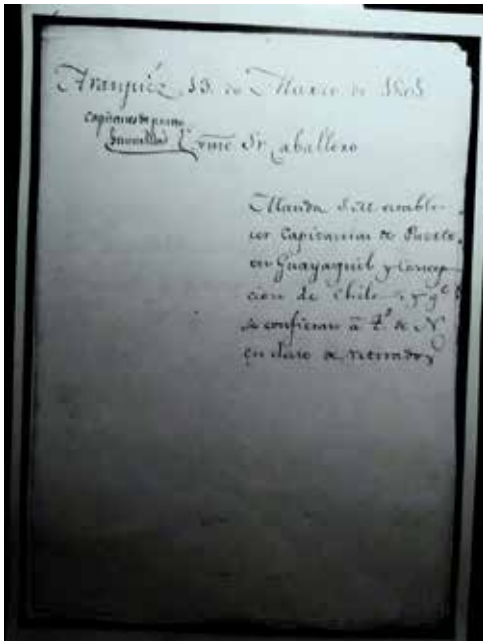 Aranjuéz 13. de Marzo de 1805
Capitanes de puerto
Exmo Sr. Caballero
Manda S.M. estable-
cer Capitanias de Puerto
en Guayaquil y Concep-
cion de Chile, y qe
se confieran á Ts. de N.
en clase de retirados